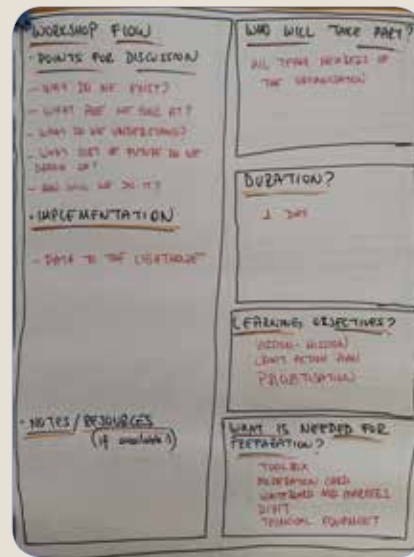 WORKSHOP FLOW
· POINTS FOR DISCUSSION
- WHY DO WE EXIST?
- WHAT ARE WE GOOD AT?
- WHAT DO WE UNDERSTAND?
- WHAT SORT OF FUTURE DO WE
DREAM OF?
- HOW WILL WE DO IT?
· IMPLEMENTATION
- PATH TO THE LIGHTHOUSE
· NOTES / RESOURCES
(if available!)
WHO WILL TAKE PART?
ALL TEAM MEMBERS OF
THE ORGANISATION
DURATION?
1 DAY
LEARNING OBJECTIVES?
VISION - MISSION
ACTION PLAN
WHAT IS NEEDED FOR
PREPARATION?
TOOLBOX
MODERATION CARD
WHITEBOARD AND MARKERS
TECHNICAL EQUIPMENT